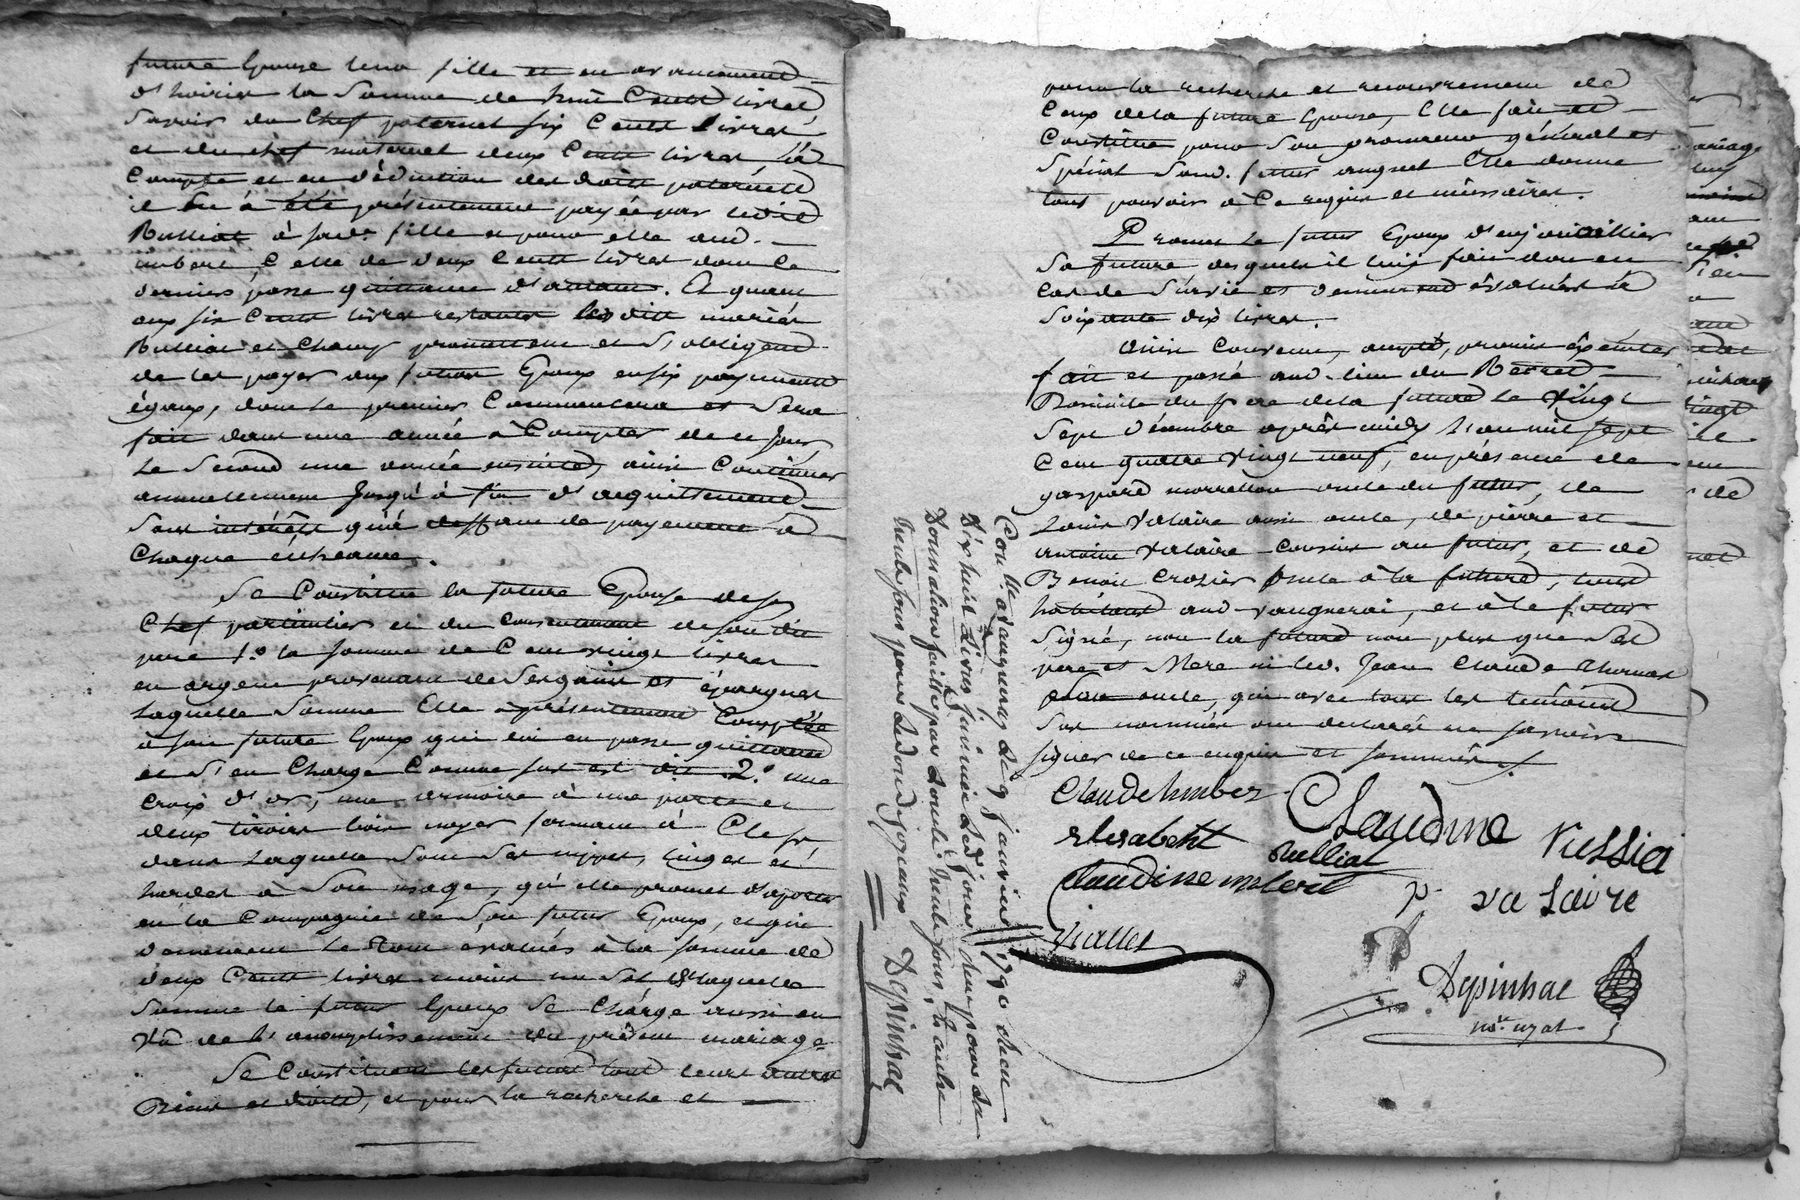 future Epouse leur fille et en avancement
d'hoirie la Somme de huit Cents livres
Savoir du Chef paternel six Cents livres
et du chef maternel deux Cents livres, à
Compte et en déduction des droits paternels
il en a été présentement payée par ledit
Rulliat à sad. fille et pour elle aud.
imbert Celle de deux Cents livres dont ce
dernier passe quittance d'autant. Et quant
aux six Cents livres restants lesdits mariés
Rulliat et promettent et s'obligent
de les payer aux futurs Epoux en six payements
égaux, dont le premier Commencera et Sera
fait dans une année à Compter de ce jour
Le Second une année ensuite, ainsi Continuer
annuellement jusqu'à fin d'acquittement
Sans intérêts qu'à deffaut de payement à
Chaque echeance.
Se Constitue la future Epouse de Son
Chef particulier et du consentement de son dit
pere 1.° la somme de Cent vingt livres
en argent provenant de Ses gains et épargnes
Laquelle Somme Elle a présentement Comptée
à son futur Epoux qui lui en passe quittance
et s'en Charge Comme sus est dit 2.° une
croix d'or, une armoire à une porte et
deux tiroirs bois noyer fermant à Clef
dans Laquelle Sont Ses nippes, linges et
hardes à Son usage, qu'elle promet d'aporter
en la Compagnie de Son futur Epoux, et qui
demeurent le tout évalués à la somme de
deux Cents livres moins un Sol de laquelle
Somme le futur Epoux Se Charge aussi en
vû de l'accomplissement du présent mariage
Se Constituent les futurs tous leurs autres
Biens et droits, et pour la recherche et
pour la recherche et recouvrement de
Ceux de la future Epouse, Elle fait et
Constitue pour Son procureur général et
Spécial Sond. futur auquel Elle donne
tous pouvoirs à Ce requis et nécessaires.
Promet le futur Epoux d'enjoailler
Sa future desquels il lui fait don en
Cas de Survie et demeurent évalués à
Soixante dix livres.
Ainsi Convenu, accepté, promis éxécuter
fait et passé aud. lieu du
Domicile du pere de la future Le vingt
Sept Décembre après midy L'an mil sept
Cent quatre vingt neuf, en présence de
gaspard morrellon oncle du futur, de
Louis Valaire aussi oncle, de pierre et
antoine Valaire Cousins au futur, et de
Benoit Crozier oncle à la future, tous
habitants aud. vaugnerai, et a le futur
Signé, non la future non plus que Ses
pere et Mere ni led. Jean Claude
oncle, qui avec tous les témoins
Sus nommés ont declaré ne savoir
signer de ce enquis et sommés
Claude Imber
Claudine Vussia
elisabeht Rulliat
Claudine imbert
p. va Laire
viallet
Depinhac
no.re royal
Con.lle à vaugneray le 9 janvier 1790 Recu
Dix huit Livres, insinué led. jour, deux pour la
Donnations faittes par Roulé: trente sous, & autre
trente sous pour Le don de joyaux Depinhac